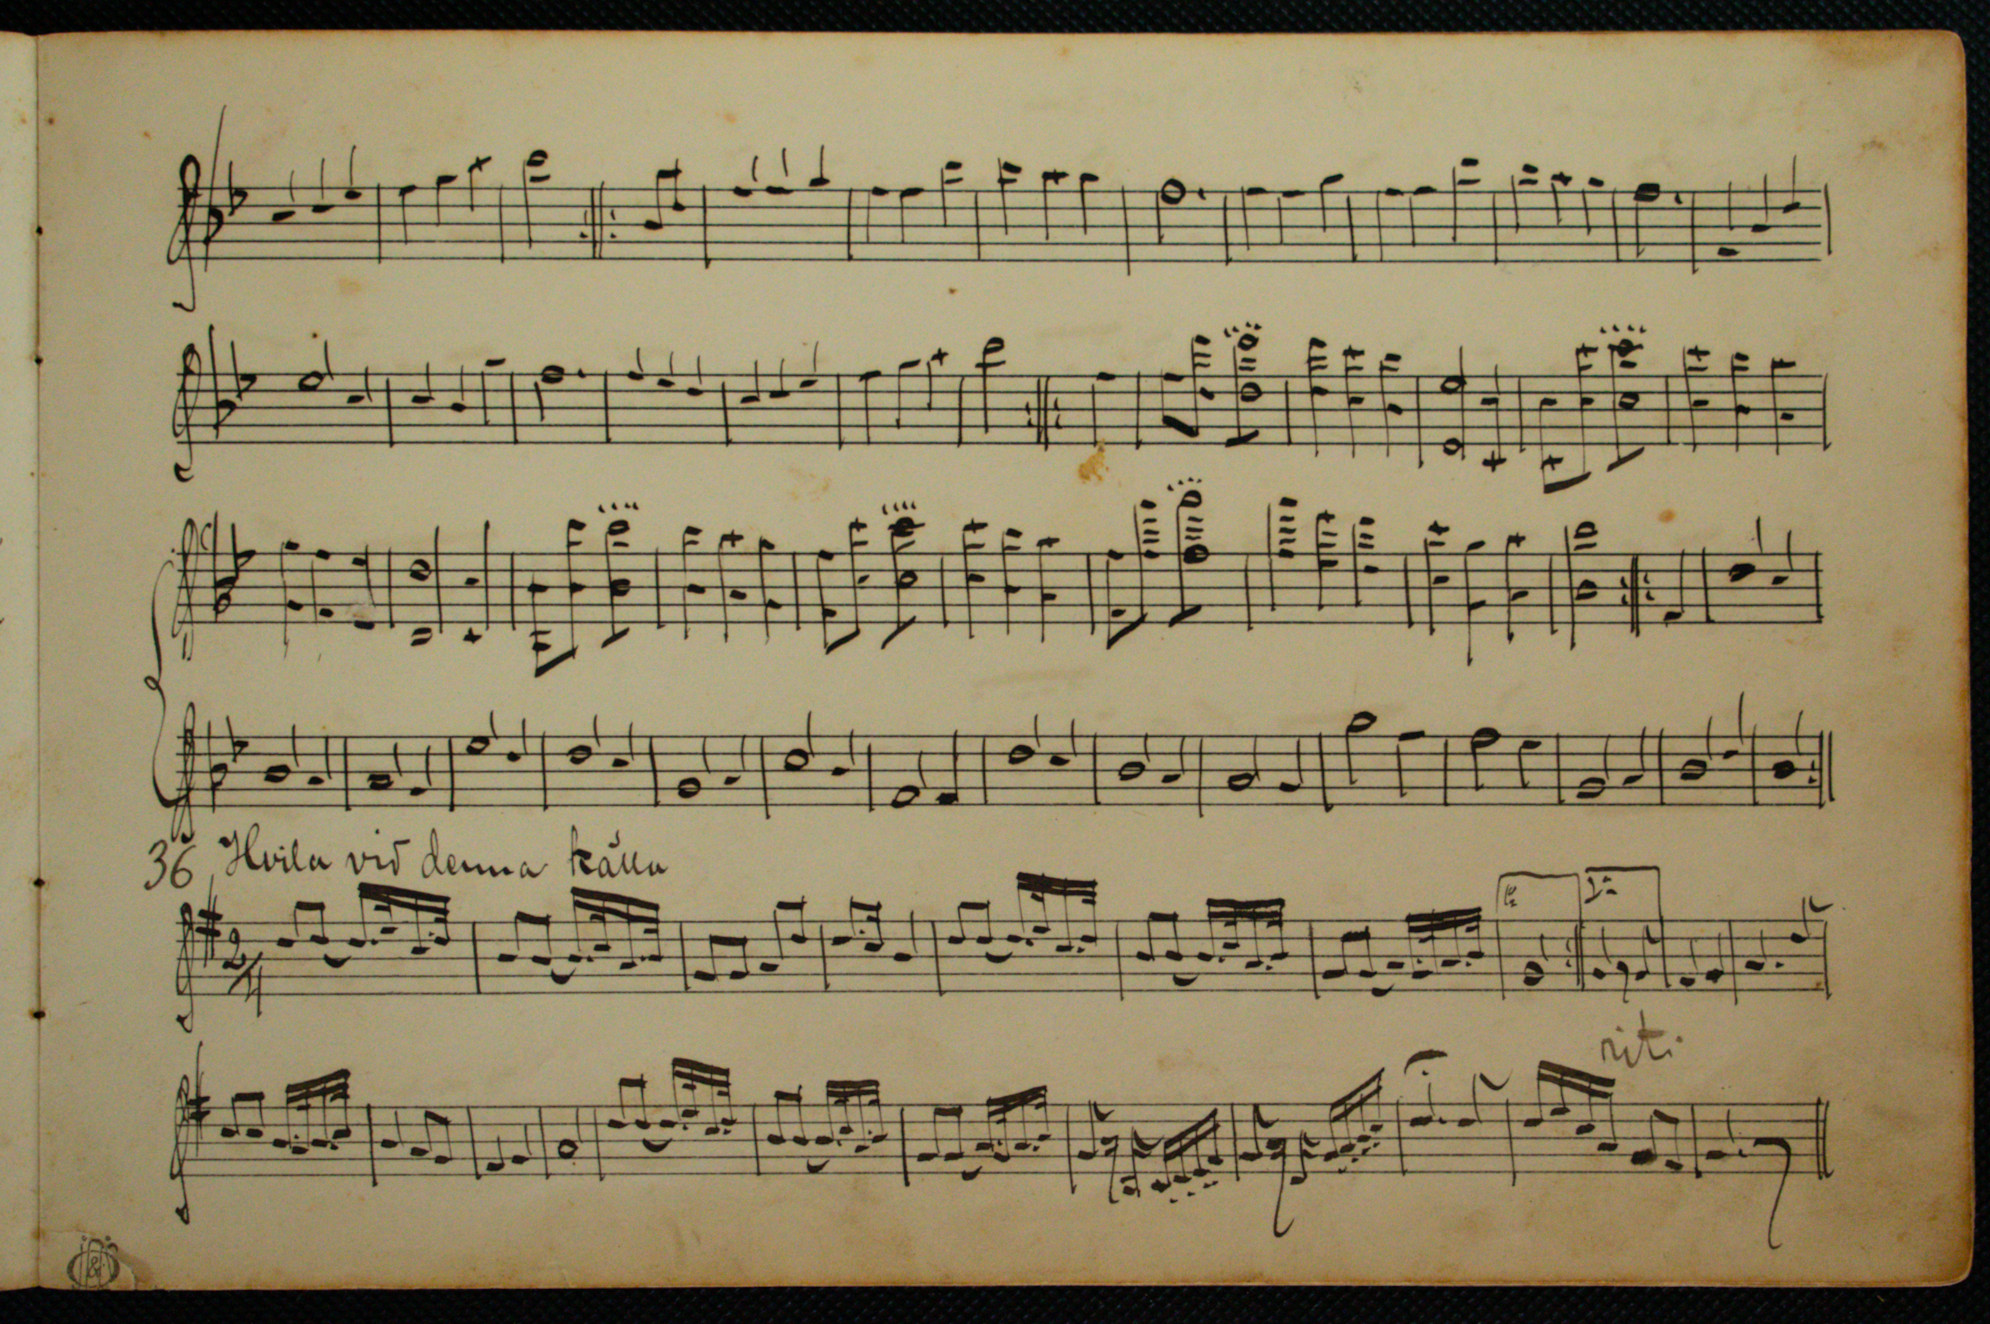 36 Hvila vid denna källa
2/4
1a 2a
rit.